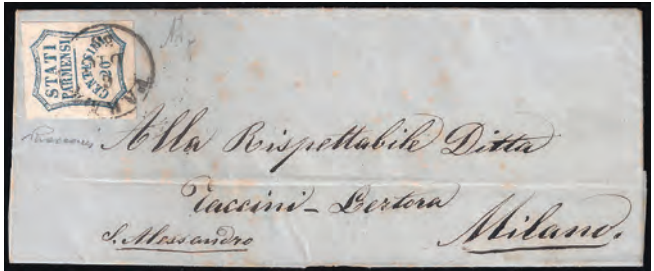 STATI
PARMENSI
CENTESIMI
20
Alla Rispettabile Ditta
Taccini - Bertora
S. Alessandro
Milano.